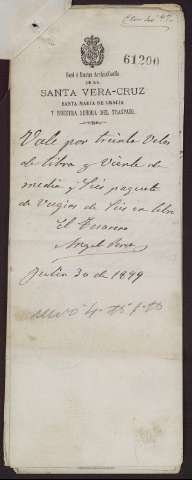 61200
Real é Ilustre Archicofradía
DE LA
SANTA VERA-CRUZ
SANTA MARÍA DE GRACIA
Y NUESTRA SEÑORA DEL TRASPASO.
Vale por treinta Velas
de libra y Veinte de
media y Seis paquete
de Vugías de Seis en libra
El Tesorero
Angel
Julio 30 de 1899